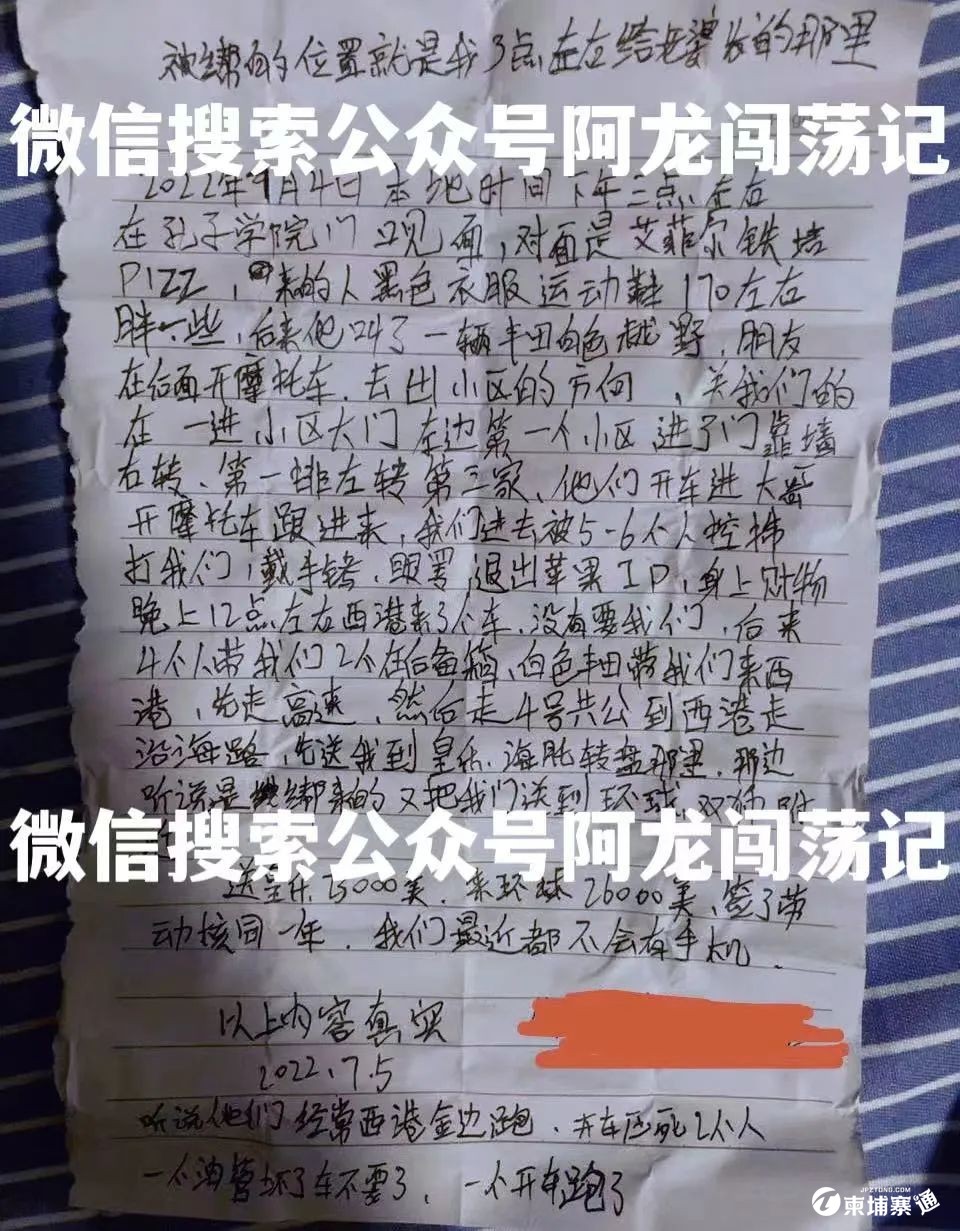 被绑的位置就是我3点左右给老婆发的那里
微信搜索公众号阿龙闯荡记
2022年7月4日本地时间下午三点左右
在孔子学院门口见面,对面是艾菲尔铁塔
PIZZ,来的人黑色衣服运动鞋170左右
胖一些,后来他叫了一辆丰田白色越野,朋友
在后面开摩托车,去出小区的方向,关我们的
在一进小区大门左边第一个小区进了门靠墙
右转、第一排左转第三家、他们开车进大
开摩托车跟进来,我们进去被5-6个人控
打我们,戴手铐,眼罩 退出苹果ID,身上财物
晚上12点左右西港来3个车,没有要我们,后来
4个人带我们2个在后备箱,白色丰田带我们来西
港,先走高速,然后走4号共公到西港走
沿海路,先送我到皇乐,海豚转盘那里,那边
听说是绑来的又把我们送到环球,双狮
微信搜索公众号阿龙闯荡记
送皇乐15000美,来环球26000美,签了劳
动核同一年,我们最近都不会有手机.
以上内容真实
2022.7.5
听说他们经常西港金边跑,开车压死2个人
一个油管坏了车不要了,一个开车跑了
JPZTONG.COM
柬埔寨通